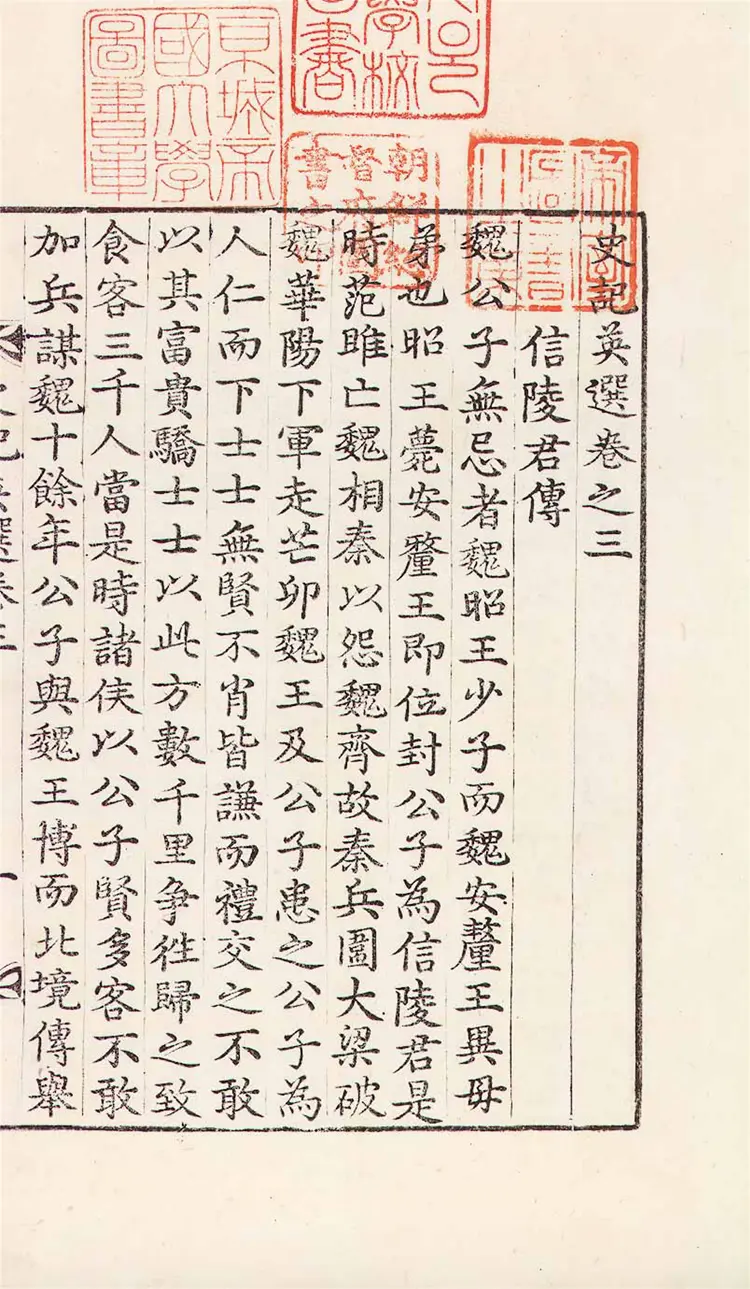 京城帝
國大學
圖書章
朝鮮總
督府圖
書之
史記英選卷之三
信陵君傳
魏公子無忌者魏昭王少子而魏安釐王異母
弟也昭王薨安釐王即位封公子為信陵君是
時范雎亡魏相秦以怨魏齊故秦兵圍大梁破
魏華陽下軍走芒卯魏王及公子患之公子為
人仁而下士士無賢不肖皆謙而禮交之不敢
以其富貴驕士士以此方數千里争徃歸之致
食客三千人當是時諸侯以公子賢多客不敢
加兵謀魏十餘年公子與魏王博而北境傳舉